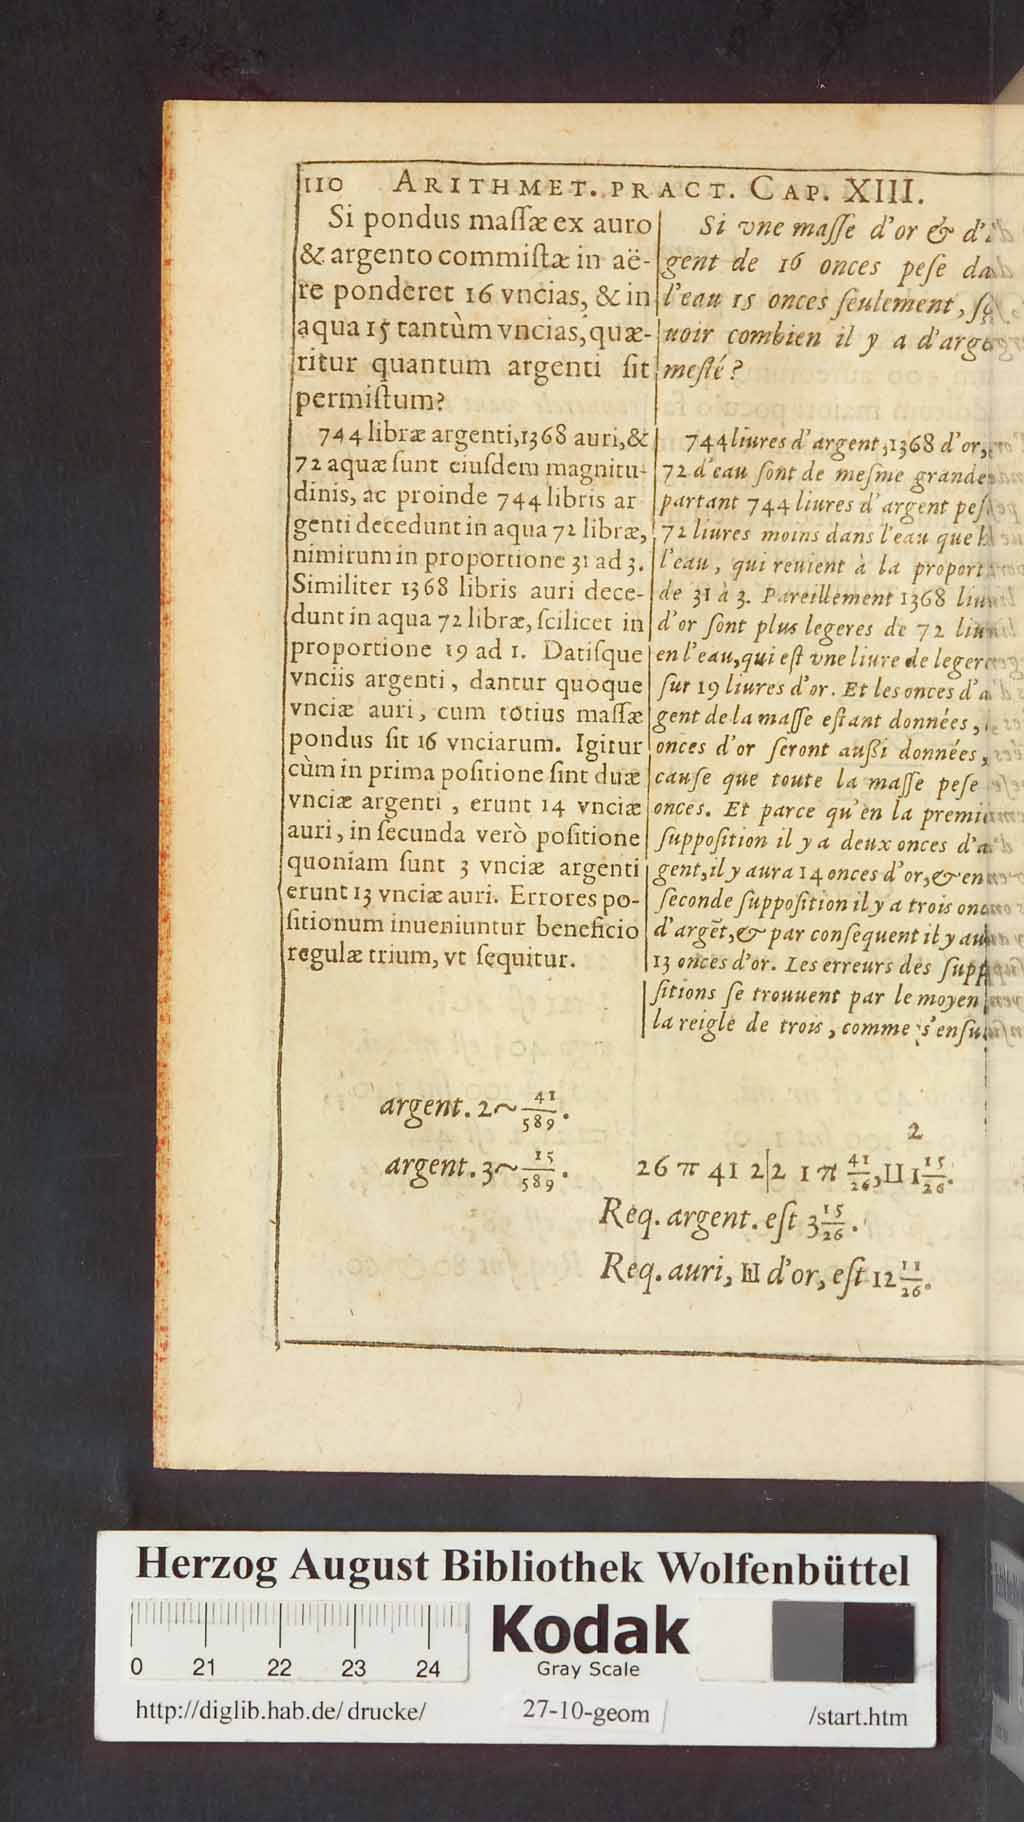 110 ARITHMET. PRACT. CAP. XIII.
Si pondus maſſæ ex auro
& argento commiſtæ in aë-
re ponderet 16 vncias, & in
aqua 15 tantùm vncias, quæ-
ritur quantum argenti ſit
permiſtum?
744 libræ argenti, 1368 auri, &
72 aquæ ſunt eiuſdem magnitu-
dinis, ac proinde 744 libris ar
genti decedunt in aqua 72 libræ,
nimirum in proportione 31 ad 3.
Similiter 1368 libris auri dece-
dunt in aqua 72 libræ, ſcilicet in
proportione 19 ad 1. Datiſque
vnciis argenti, dantur quoque
vnciæ auri, cum totius maſſæ
pondus ſit 16 vnciarum. Igitur
cùm in prima poſitione ſint duæ
vnciæ argenti, erunt 14 vnciæ
auri, in ſecunda verò poſitione
quoniam ſunt 3 vnciæ argenti
erunt 13 vnciæ auri. Errores po-
ſitionum inueniuntur beneficio
regulæ trium, vt ſequitur.
Si vne maſſe d'or & d'
gent de 16 onces peſe da
l'eau 15 onces ſeulement, ſç
uoir combien il y a d'arge
meſlé?
744 liures d'argent, 1368 d'or,
72 d'eau ſont de meſme grande
partant 744 liures d'argent peſ
72 liures moins dans l'eau que
l'eau, qui reuient à la proport
de 31 à 3. Pareillement 1368 liu
d'or ſont plus legeres de 72 liu
en l'eau, qui eſt vne liure de leger
ſur 19 liures d'or. Et les onces d'a
gent de la maſſe eſtant données,
onces d'or ſeront auſsi données,
cauſe que toute la maſſe peſe
onces. Et parce qu'en la premi
ſuppoſition il y a deux onces d'a
gent, il y aura 14 onces d'or, & en
ſeconde ſuppoſition il y a trois onc
d'argēt, & par conſequent il y au
13 onces d'or. Les erreurs des ſupp
ſitions ſe trouuent par le moyen
la reigle de trois, comme s'enſu
argent. 2 ~ 41/589.
argent. 3 ~ 15/589.
2
26 π 41 2|2 1 π 41/26, Ш 1 15/26.
Req. argent. eſt 3 15/26.
Req. auri, Ш d'or, eſt 12 11/26.
Herzog August Bibliothek Wolfenbüttel
Kodak
Gray Scale
0 21 22 23 24
http://diglib.hab.de/drucke/ 27-10-geom /start.htm